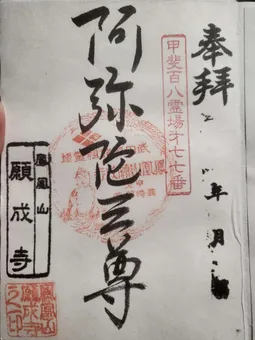 奉拝
年 月
甲斐百八霊場才七七番
阿弥陀三尊
鳳凰山
願成寺
鳳凰山
願成寺
之印